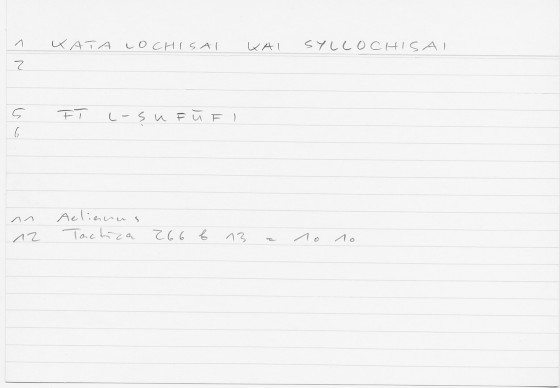 1 KATALOCHISAI KAI SYLLOCHISAI
2
5 FĪ L-ṢUFŪFI
6
11 Aelianus
12 Tactica 266 b 13 = 10 10